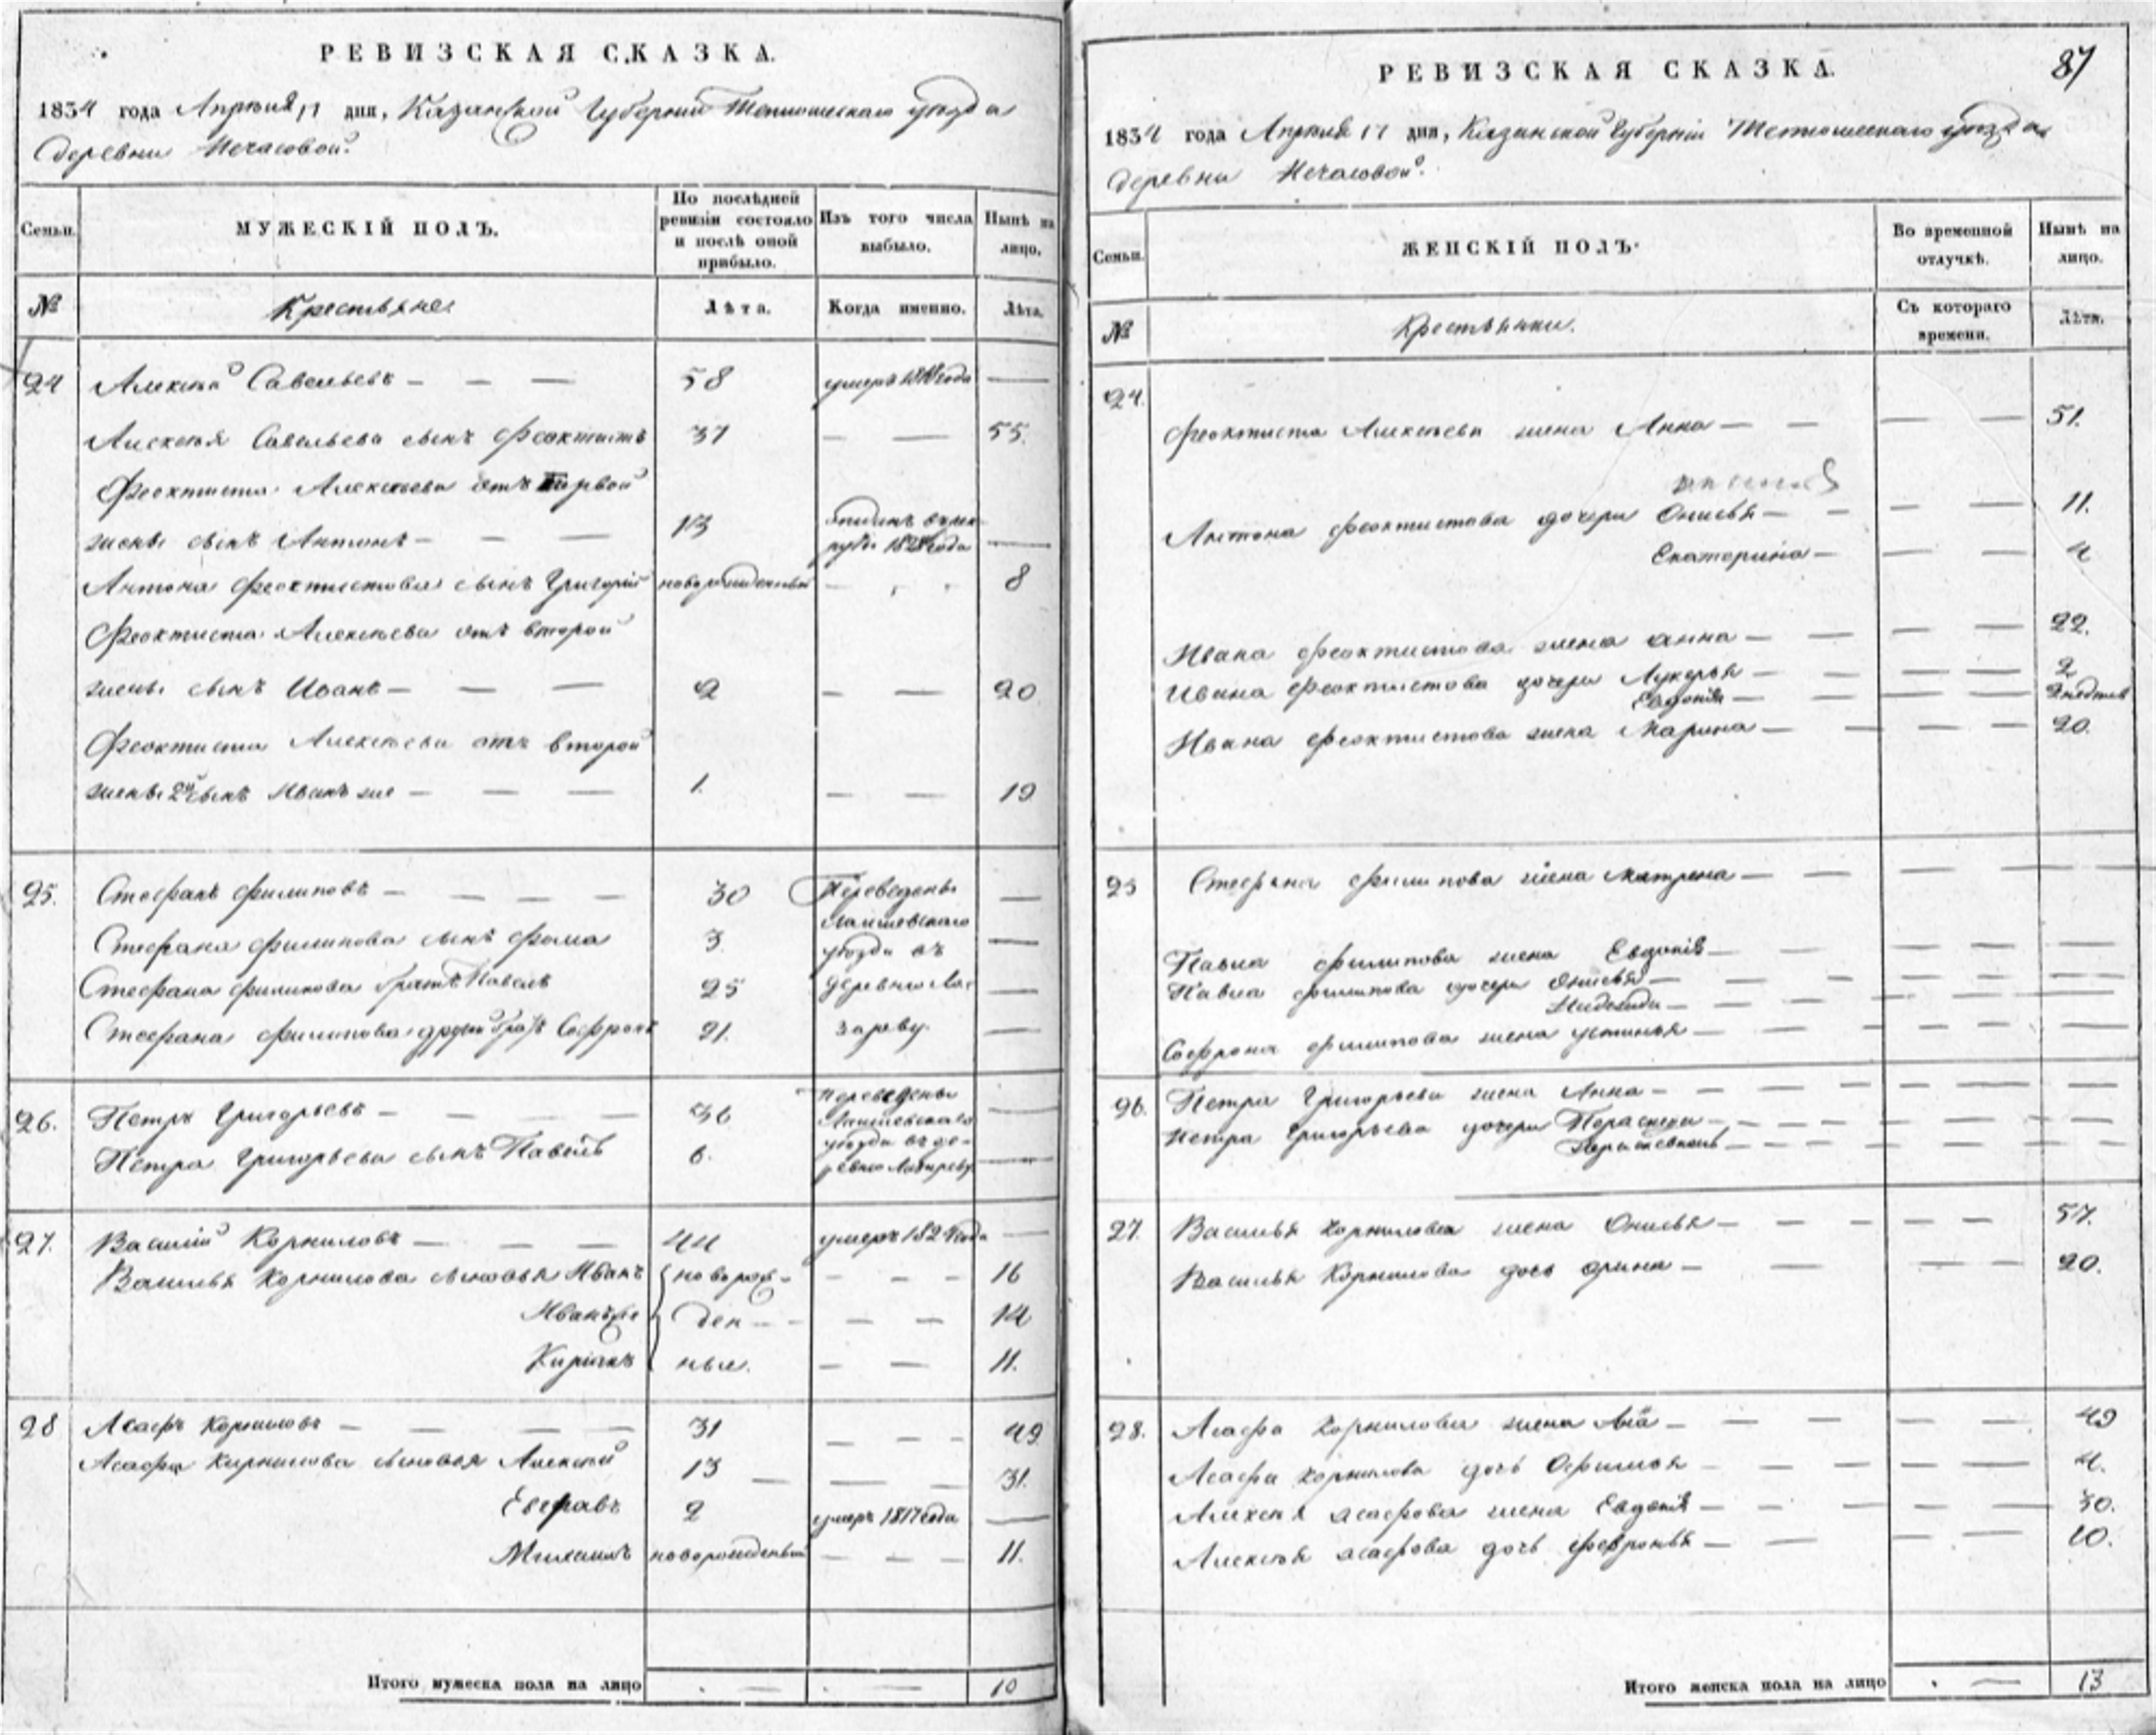 РЕВИЗСКАЯ СКАЗКА.
1834 года Апрѣля 17 дня, Казанской Губернии Тетюшскаго уѣзда
деревни Нечасовой.
Семьи.
МУЖЕСКІЙ ПОЛЪ.
По послѣдней ревизіи состояло и послѣ оной прибыло.
Изъ того числа выбыло.
Нынѣ на лицо.
№
Крестьяне
Лѣта.
Когда именно.
Лѣта.
24 Алексѣй Савельевъ — — — 58 умеръ года —
Алексѣя Савельева сынъ Феоктистъ 37 — — 55.
Феоктиста Алексѣева отъ первой
жены сынъ Антонъ — — — 13 отданъ въ рек
руты 1828 года —
Антона Феоктистова сынъ Григорій новорожденный — 8
Феоктиста Алексѣева отъ второй
жены сынъ Иванъ — — — 2 — — 20
Феоктиста Алексѣева отъ второй
жены 2й сынъ Иванъ же — — — 1. — — 19
25. Стефанъ Филиповъ — — — — 30 Переведены —
Лаишевскаго
Стефана Филипова сынъ Фома 3 уѣзда въ —
Стефана Филипова братъ Павелъ 25 деревню Ла- —
Стефана Филипова другой братъ Софронъ 21. зареву —
26. Петръ Григорьевъ — — — 36 переведены —
Лаишевскаго
Петра Григорьева сынъ Павелъ 6. уѣзда въ де-
ревню Лазареву —
27. Василій Корниловъ — — — 44 умеръ 1824 года —
Василья Корнилова сыновья Иванъ новорож- — — — 16
Иванъ же ден — — — 14
Кириякъ ные. — — 11.
28 Асафъ Корниловъ — — — — 31 — — — 49
Асафа Корнилова сыновья Алексѣй 13 — — — 31.
Евграфъ 2 умеръ 1817 года —
Михаилъ новорожденный — — — 11.
Итого мужеска пола на лицо — — 10
87
РЕВИЗСКАЯ СКАЗКА.
1834 года Апрѣля 17 дня, Казанской Губерніи Тетюшскаго уѣзда
деревни Нечасовой.
Семьи.
ЖЕНСКІЙ ПОЛЪ.
Во временной отлучкѣ.
Нынѣ на лицо.
№
Крестьянки.
Съ котораго времени.
Лѣта.
24. Феоктиста Алексѣева жена Анна — — — — 51.
Антона Феоктистова дочери Онисья — — — — 11.
Екатерина — — — 4
Ивана Феоктистова жена Анна — — — — 22.
Ивана Феоктистова дочери Лукерья — — — — 2
Евдокія — — — 2 недѣль
Ивана Феоктистова жена Марина — — — — 20.
25 Стефана Филипова жена Матрена — — — — —
Павла Филипова жена Евдокія — — — — —
Павла Филипова дочери Онисья — — — — —
— — — — —
Софрона Филипова жена Устинья — — — — —
26. Петра Григорьева жена Анна — — — — — —
Петра Григорьева дочери Пораскева — — — — —
— — — — —
27. Василья Корнилова жена Онисья — — — — — 57.
Василья Корнилова дочь Орина — — — — 20.
28. Асафа Корнилова жена Анна — — — — — 49
Асафа Корнилова дочь Офимья — — — — — 4.
Алексѣя Асафова жена Евдокія — — — — — 30.
Алексѣя Асафова дочь Февронья — — — — 10.
Итого женска пола на лицо — 13